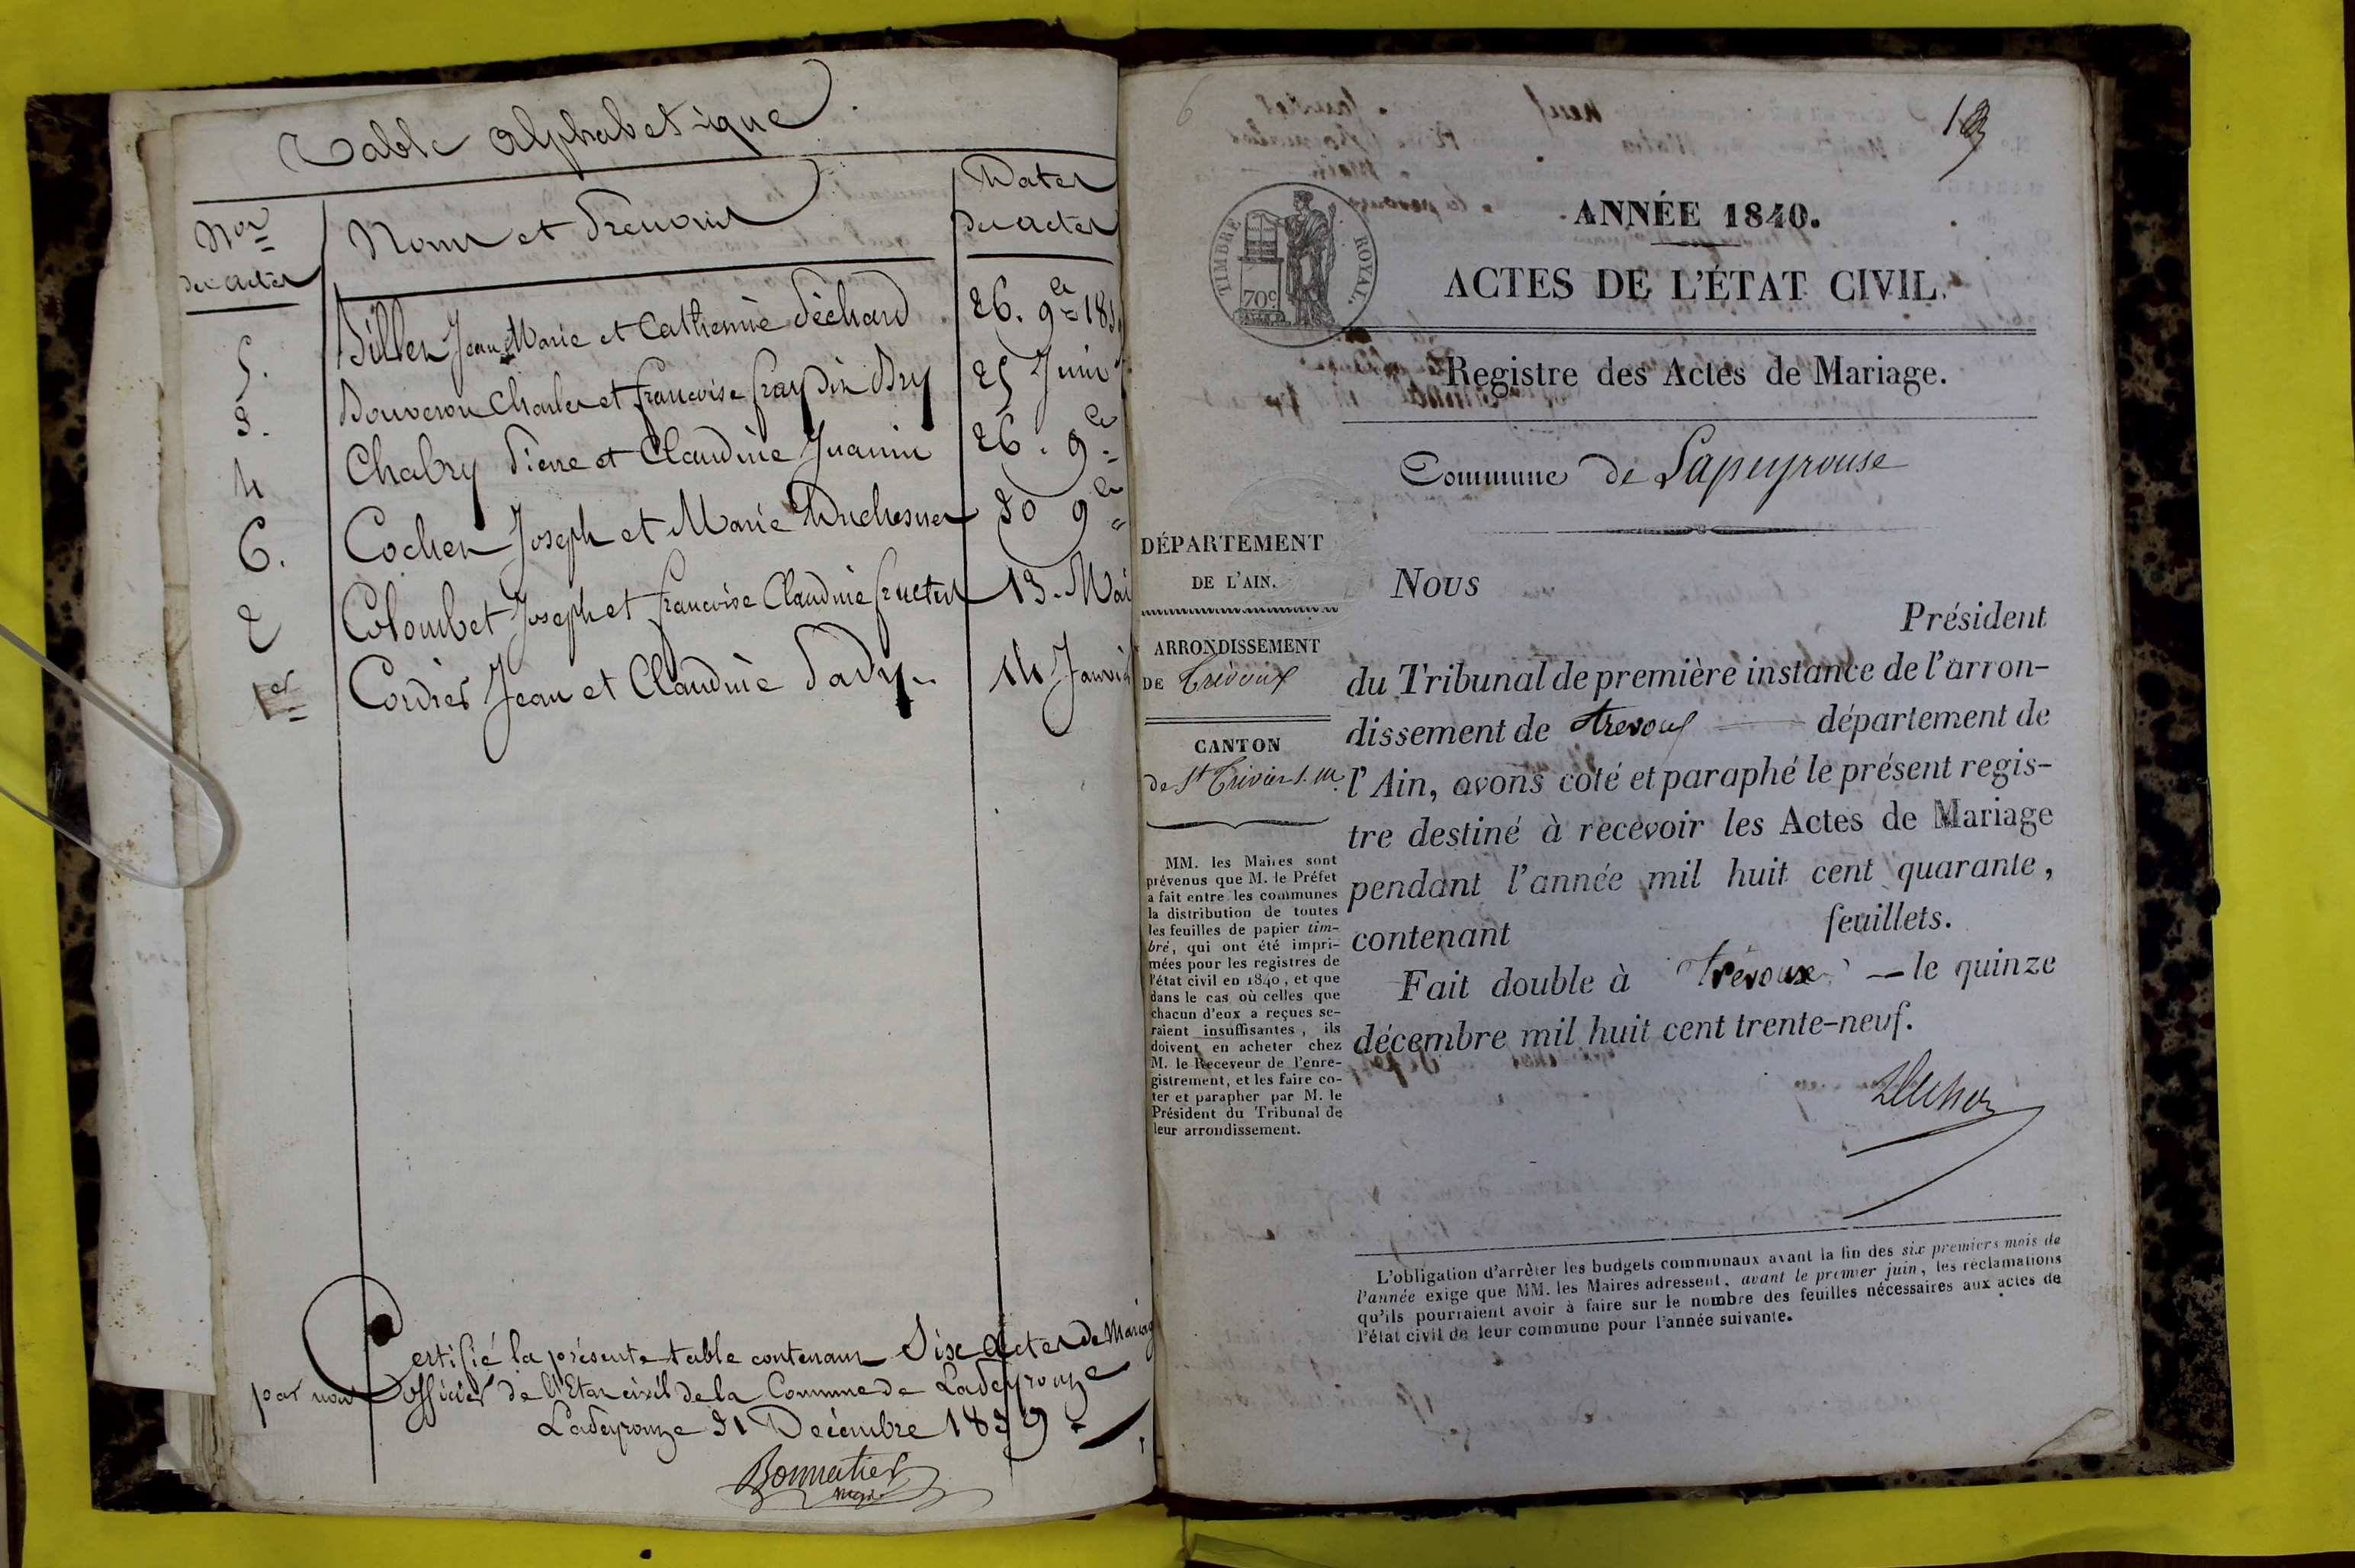 Table alphabetique
Nos
des actes
Noms et Prenoms
Dates
des actes
5. Billen Jean Marie et Catherine Péchard 26. 9e 183
3. Bouveron Charles et francoise Bry 25 Juin
4 Chabry Pierre et Claudine Juanin 26. 9e
6. Cochen Joseph et Marie Duchesne 30 9e
2 Colombet Joseph et francoise Claudine fructus 13. Mai
1er Cordier Jean et Claudine Pady.. 14 Janvie
Certifié la présente table contenant Six actes de Mariag
par nous officier de l'Etat civil de la Commune de Lapeyrouze
Lapeyrouze 31 Decembre 1839
Bonnetier
maire
6
TIMBRE ROYAL.
70c
ANNÉE 1840.
ACTES DE L'ÉTAT CIVIL.
Registre des Actes de Mariage.
Commune de Lapeyrouse
DÉPARTEMENT
DE L'AIN.
ARRONDISSEMENT
DE Trévoux
CANTON
de St Trivier s. m.
MM. les Maires sont
prévenus que M. le Préfet
a fait entre les communes
la distribution de toutes
les feuilles de papier tim-
bré, qui ont été impri-
mées pour les registres de
l'état civil en 1840, et que
dans le cas où celles que
chacun d'eux a reçues se-
raient insuffisantes, ils
doivent en acheter chez
M. le Receveur de l'enre-
gistrement, et les faire co-
ter et parapher par M. le
Président du Tribunal de
leur arrondissement.
Nous
Président
du Tribunal de première instance de l'arron-
dissement de trevoux département de
l'Ain, avons coté et paraphé le présent regis-
tre destiné à recevoir les Actes de Mariage
pendant l'année mil huit cent quarante,
contenant feuillets.
Fait double à Trévoux — le quinze
décembre mil huit cent trente-neuf.
L'obligation d'arrêter les budgets communaux avant la fin des six premiers mois de
l'année exige que MM. les Maires adressent, avant le premier juin, les réclamations
qu'ils pourraient avoir à faire sur le nombre des feuilles nécessaires aux actes de
l'état civil de leur commune pour l'année suivante.